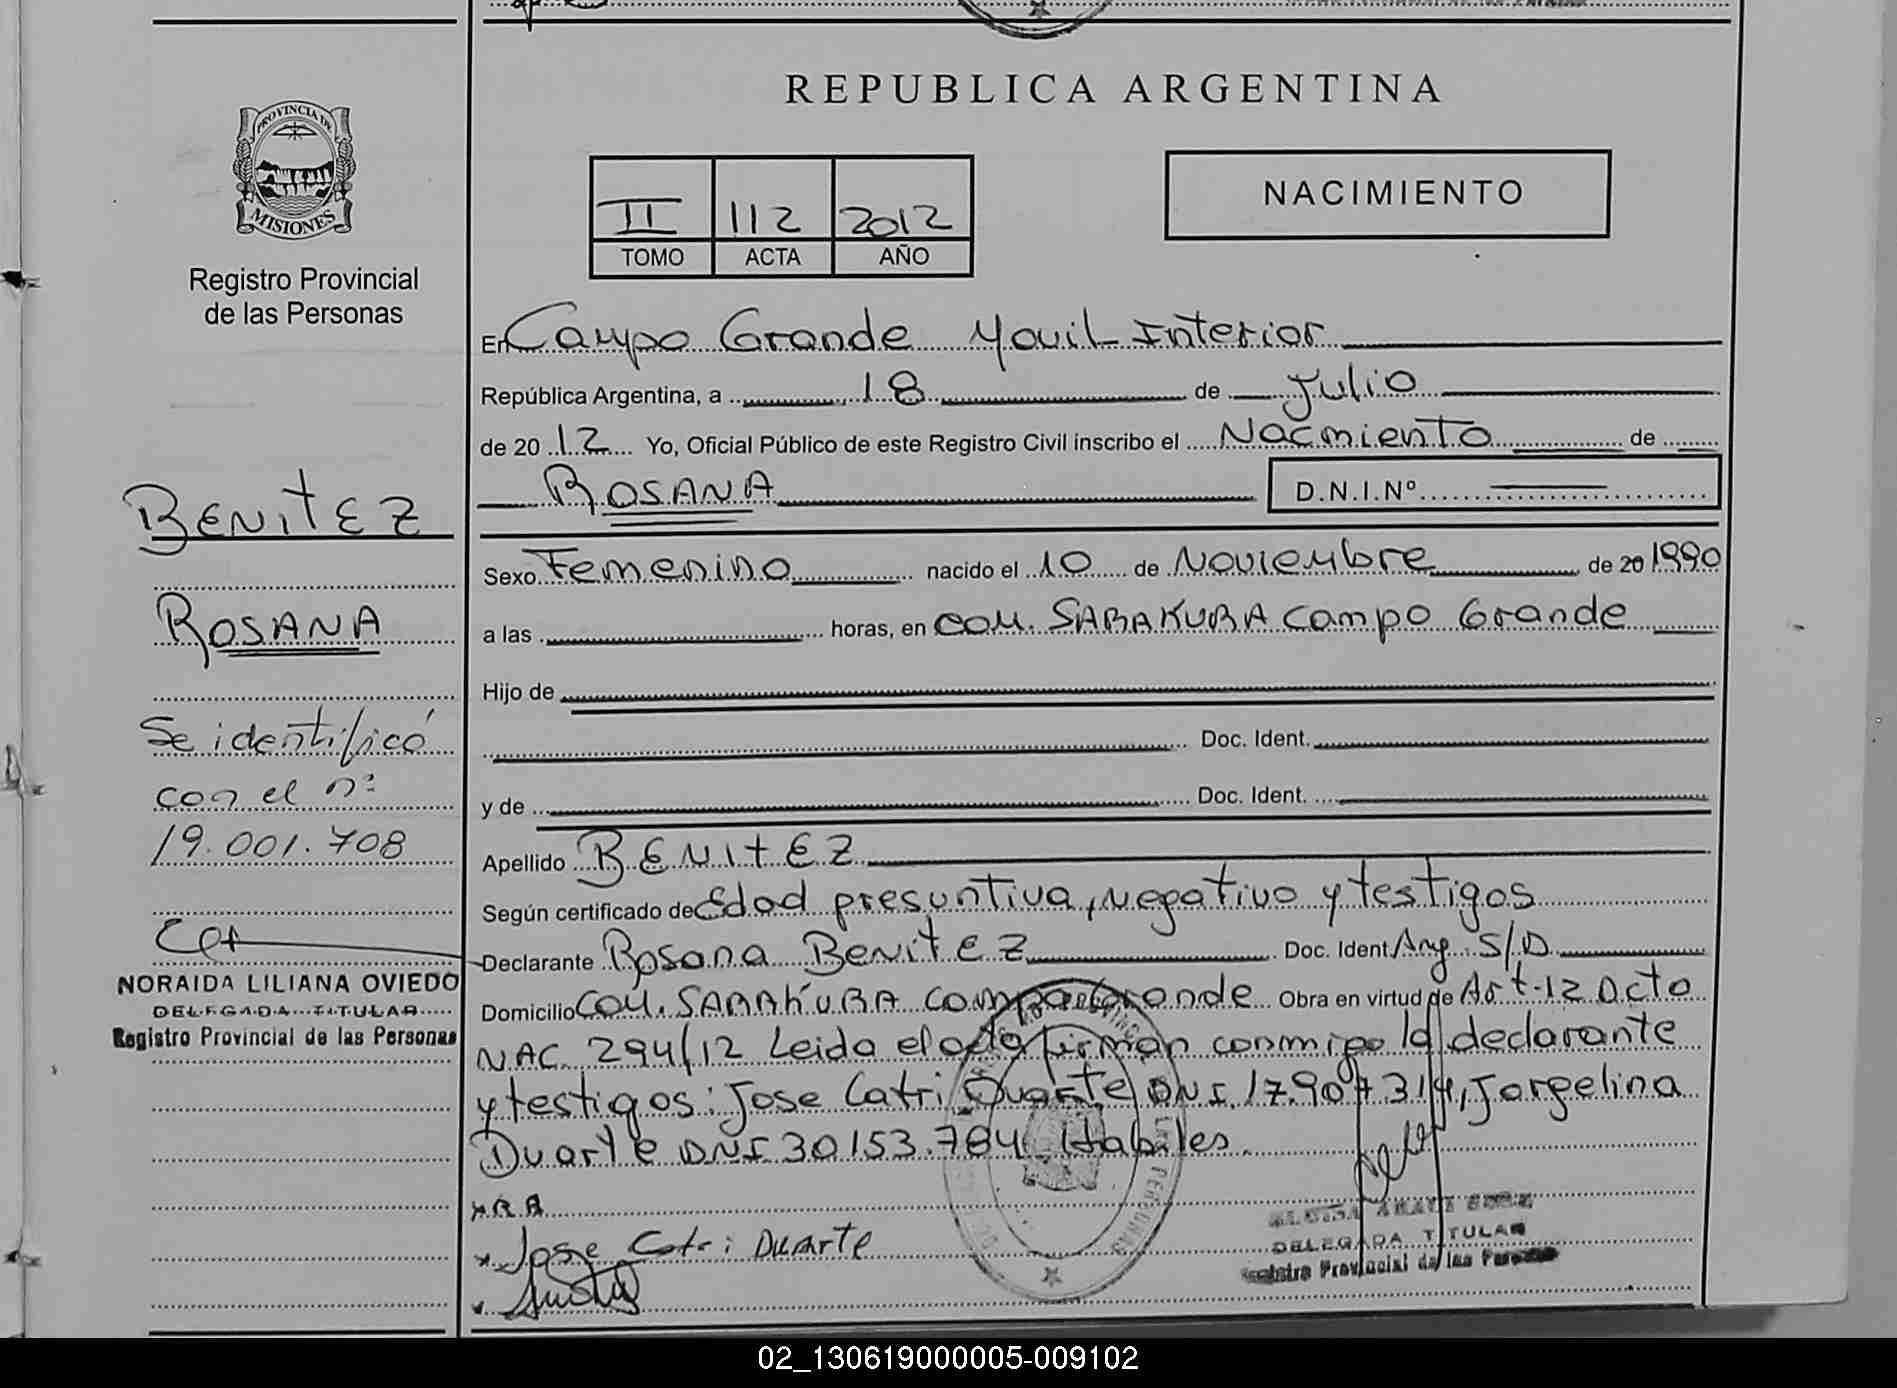 REPUBLICA ARGENTINA
PROVINCIA DE
MISIONES
Registro Provincial
de las Personas
II 112 2012
TOMO ACTA AÑO
NACIMIENTO
En Campo Grande Movil Interior
República Argentina, a 18 de Julio
de 20 12 Yo, Oficial Público de este Registro Civil inscribo el Nacmiento de
ROSANA D.N.I.Nº
BENITEZ
ROSANA
Se identificó
con el nº
19.001.708
NORAIDA LILIANA OVIEDO
DELEGADA TITULAR
Registro Provincial de las Personas
Sexo Femenino nacido el 10 de Noviembre de 20 1990
a las horas, en COM. SARAKURA Campo Grande
Hijo de
Doc. Ident.
y de Doc. Ident.
Apellido BENITEZ
Según certificado de Edad presuntiva, negativo y testigos
Declarante Rosana BENITEZ Doc. Ident. Arg. S/D
Domicilio COM. SARAKURA Campo Grande Obra en virtud de Art-12 Dcto
NAC. 294/12 Leida el acta firman conmigo la declarante
y testigos: Jose Catri Duarte DNI. 17.907.314, Jorgelina
Duarte DNI. 30153.784 Habiles.
x R A
x Jose Catri Duarte
DELEGADA TITULAR
Registro Provincial de las Personas
02_130619000005-009102